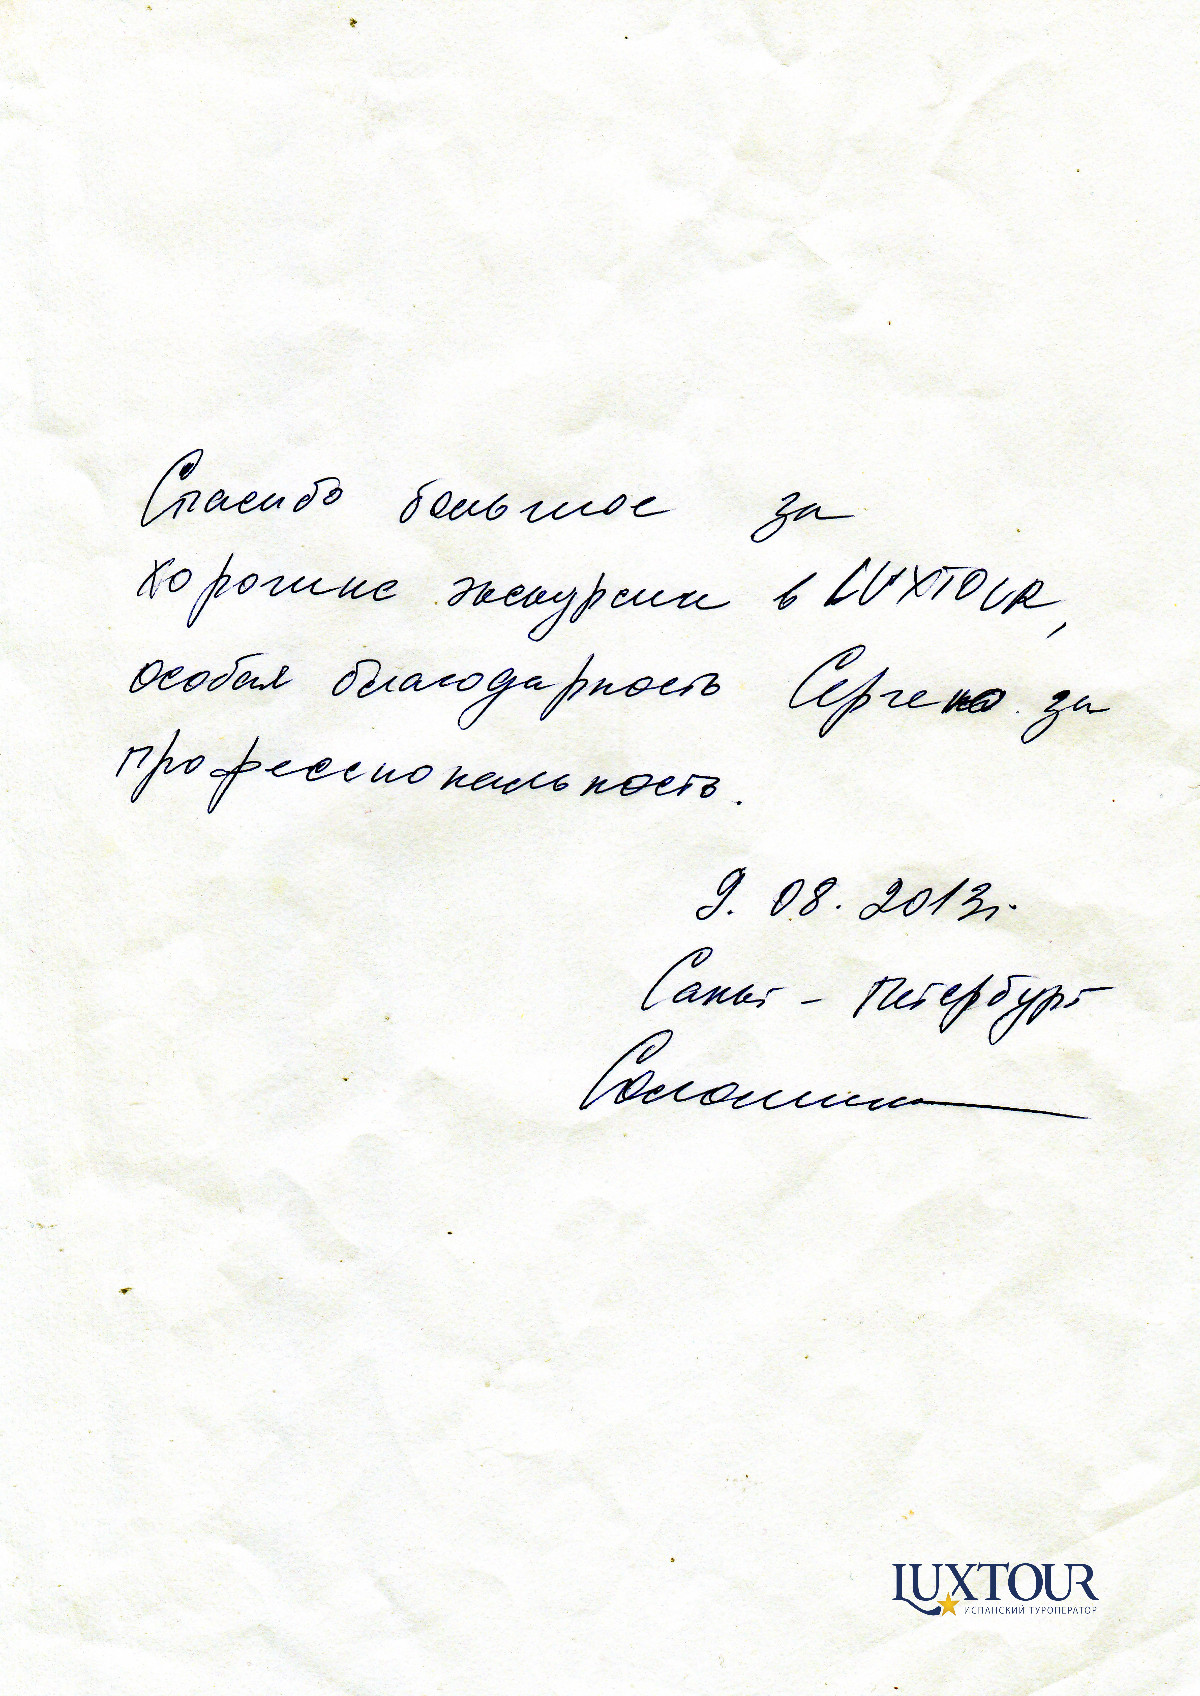 Спасибо большое за
хорошие экскурсии в LUXTOUR,
особая благодарность Сергею за
профессиональность.
9. 08. 2013г.
Санкт - Петербург
LUXTOUR
ИСПАНСКИЙ ТУРОПЕРАТОР